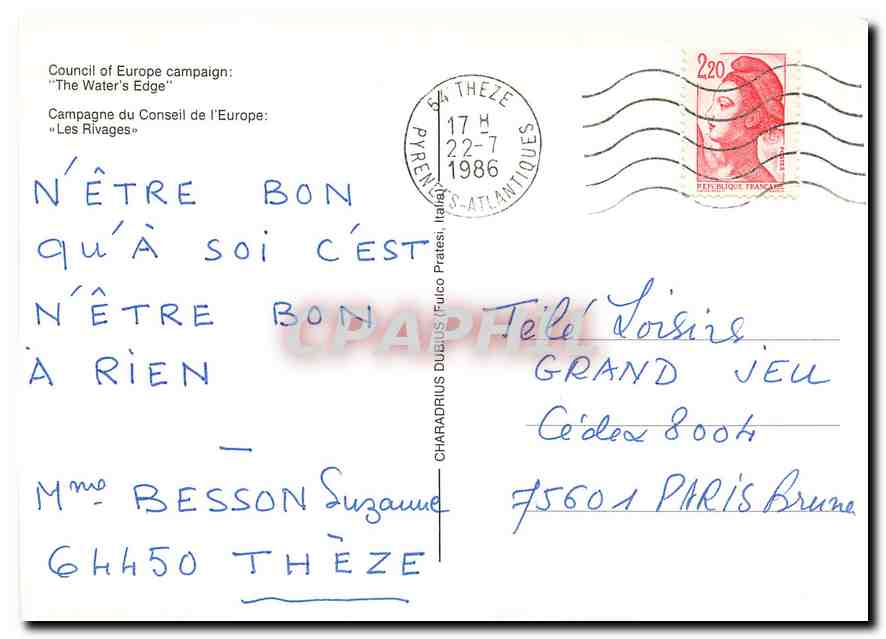 Council of Europe campaign:
"The Water's Edge"
Campagne du Conseil de l'Europe:
«Les Rivages»
N'ÊTRE BON
QU'À SOI C'EST
N'ÊTRE BON
À RIEN
—
Mme BESSON Suzanne
64450 THÈZE
CHARADRIUS DUBIUS (Fulco Pratesi, Italia)
64 THEZE
17 H
22-7
1986
PYRENEES-ATLANTIQUES
2,20
REPUBLIQUE FRANÇAISE
CPAPHIL
Télé Loisirs
GRAND JEU
Cédex 8004
75601 PARIS Brune